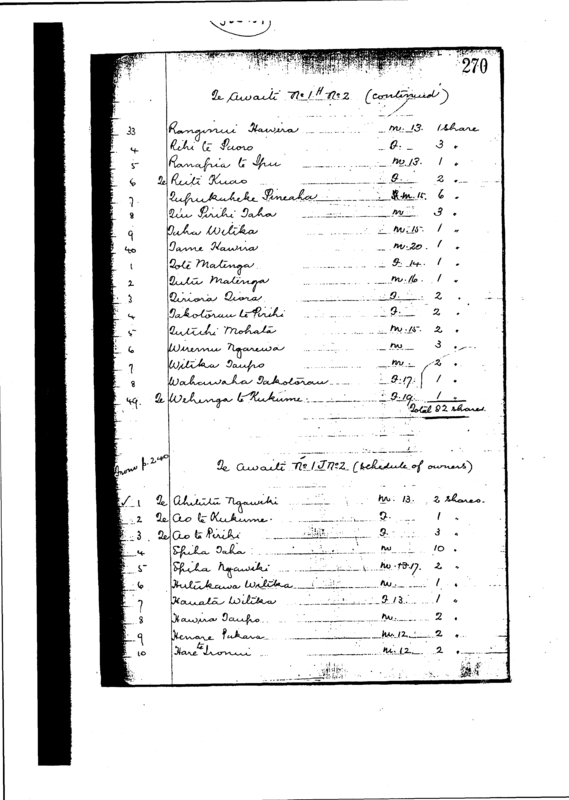 270
Te Awaiti No 1 H No 2 (continued)
33 Ranginui Hawira m. 13. 1 share
4 Rihi te Puoro F. 3 "
5 Ranapia te Ipu m 13. 1 "
6 Te Reiti Kuao F. 2 "
7 Tupukuheke Pineaha m. 15. 6 "
8 Tiu Pirihi Taha m 3 "
9 Tuha Witika m. 15. 1 "
40 Tame Hawira m. 20. 1 "
1 Tote Matenga F 14. 1 "
2 Tutu Matenga m. 16. 1 "
3 Tiriora Tiora F. 2 "
4 Takotorau te Pirihi F. 2 "
5 Tutuhi Mohata m. 15. 2 "
6 Wiremu Ngarewa m 3 "
7 Witika Taupo m. 2 "
8 Wahawaha Takotorau F. 17. 1 "
49. Te Wehenga te Kukume. F. 19. 1 "
Total 82 shares.
From p. 240
Te Awaiti No 1 J No 2 (Schedule of owners)
✓ 1 Te Ahitutu Ngawiki m. 13. 2 shares.
2 Te Ao te Kukume. F. 1 "
3 Te Ao te Pirihi F. 3 "
4 Epiha Taha m 10 "
5 Epiha Ngawiki m. 17. 2 "
6 Hutukawa Witika m. 1 "
7 Hanata Witika F 13. 1 "
8 Hawira Taupo m. 2 "
9 Henare Pukara m. 12. 2 "
10 Hare te m. 12 2 "